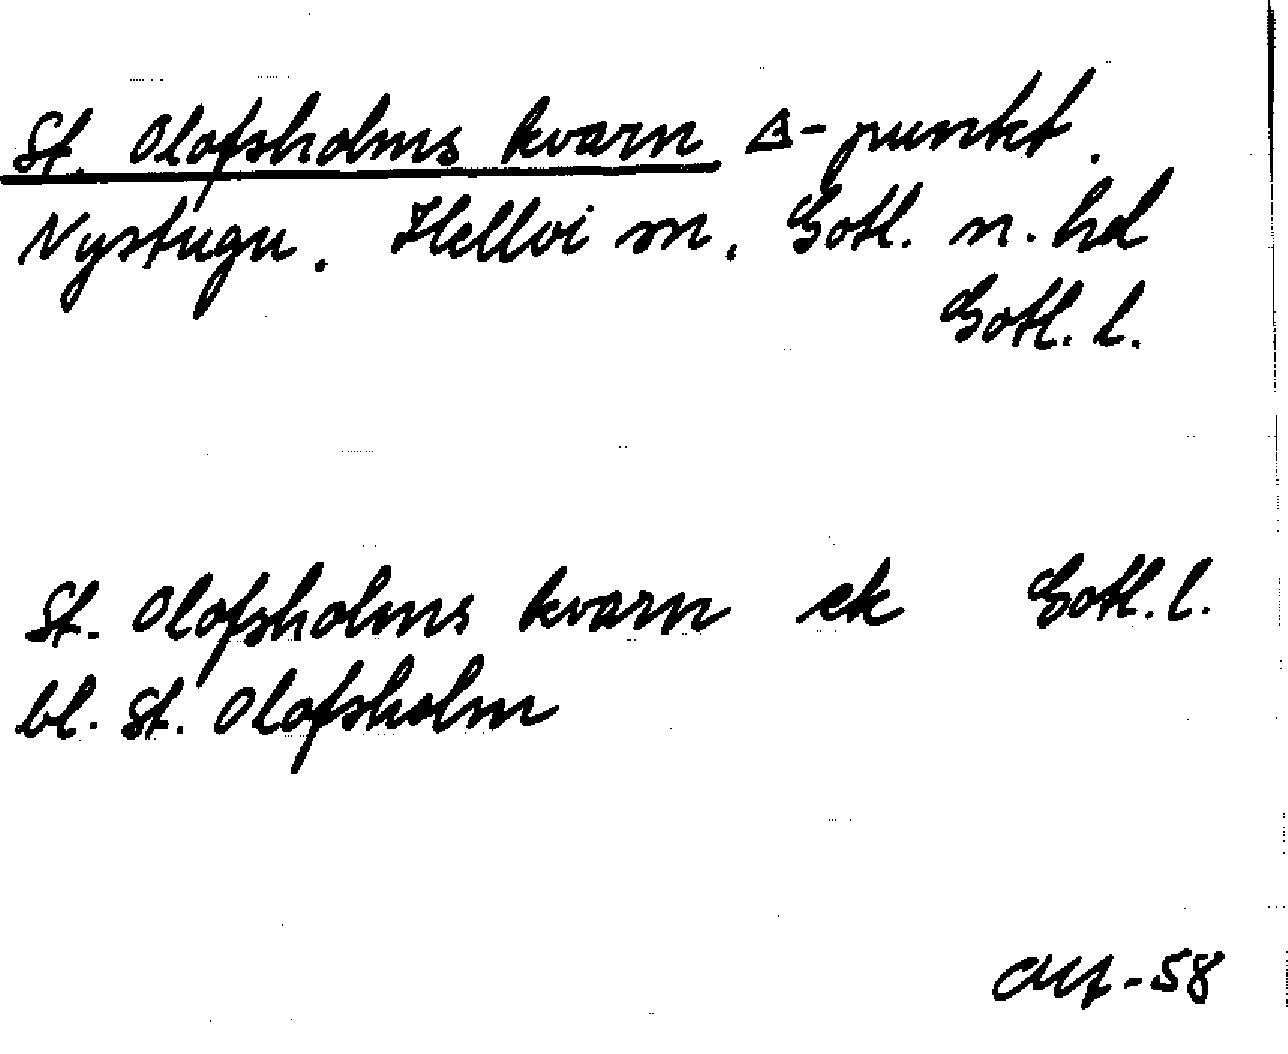 St. Olofsholms kvarn Δ-punkt.
Nystugu. Hellvi sn. Gotl. n. hd
Gotl. l.
St. Olofsholms kvarn ek Gotl. l.
bl. St. Olofsholm
-58